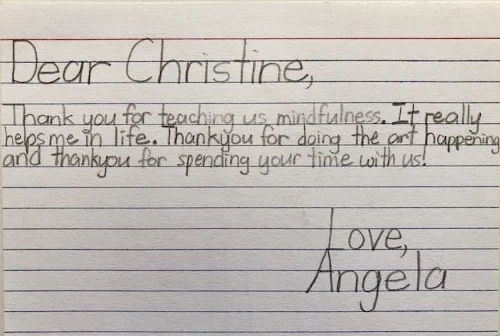 Dear Christine,
Thank you for teaching us mindfulness. It really
helps me in life. Thankyou for doing the art happening
and thankyou for spending your time with us!
Love,
Angela